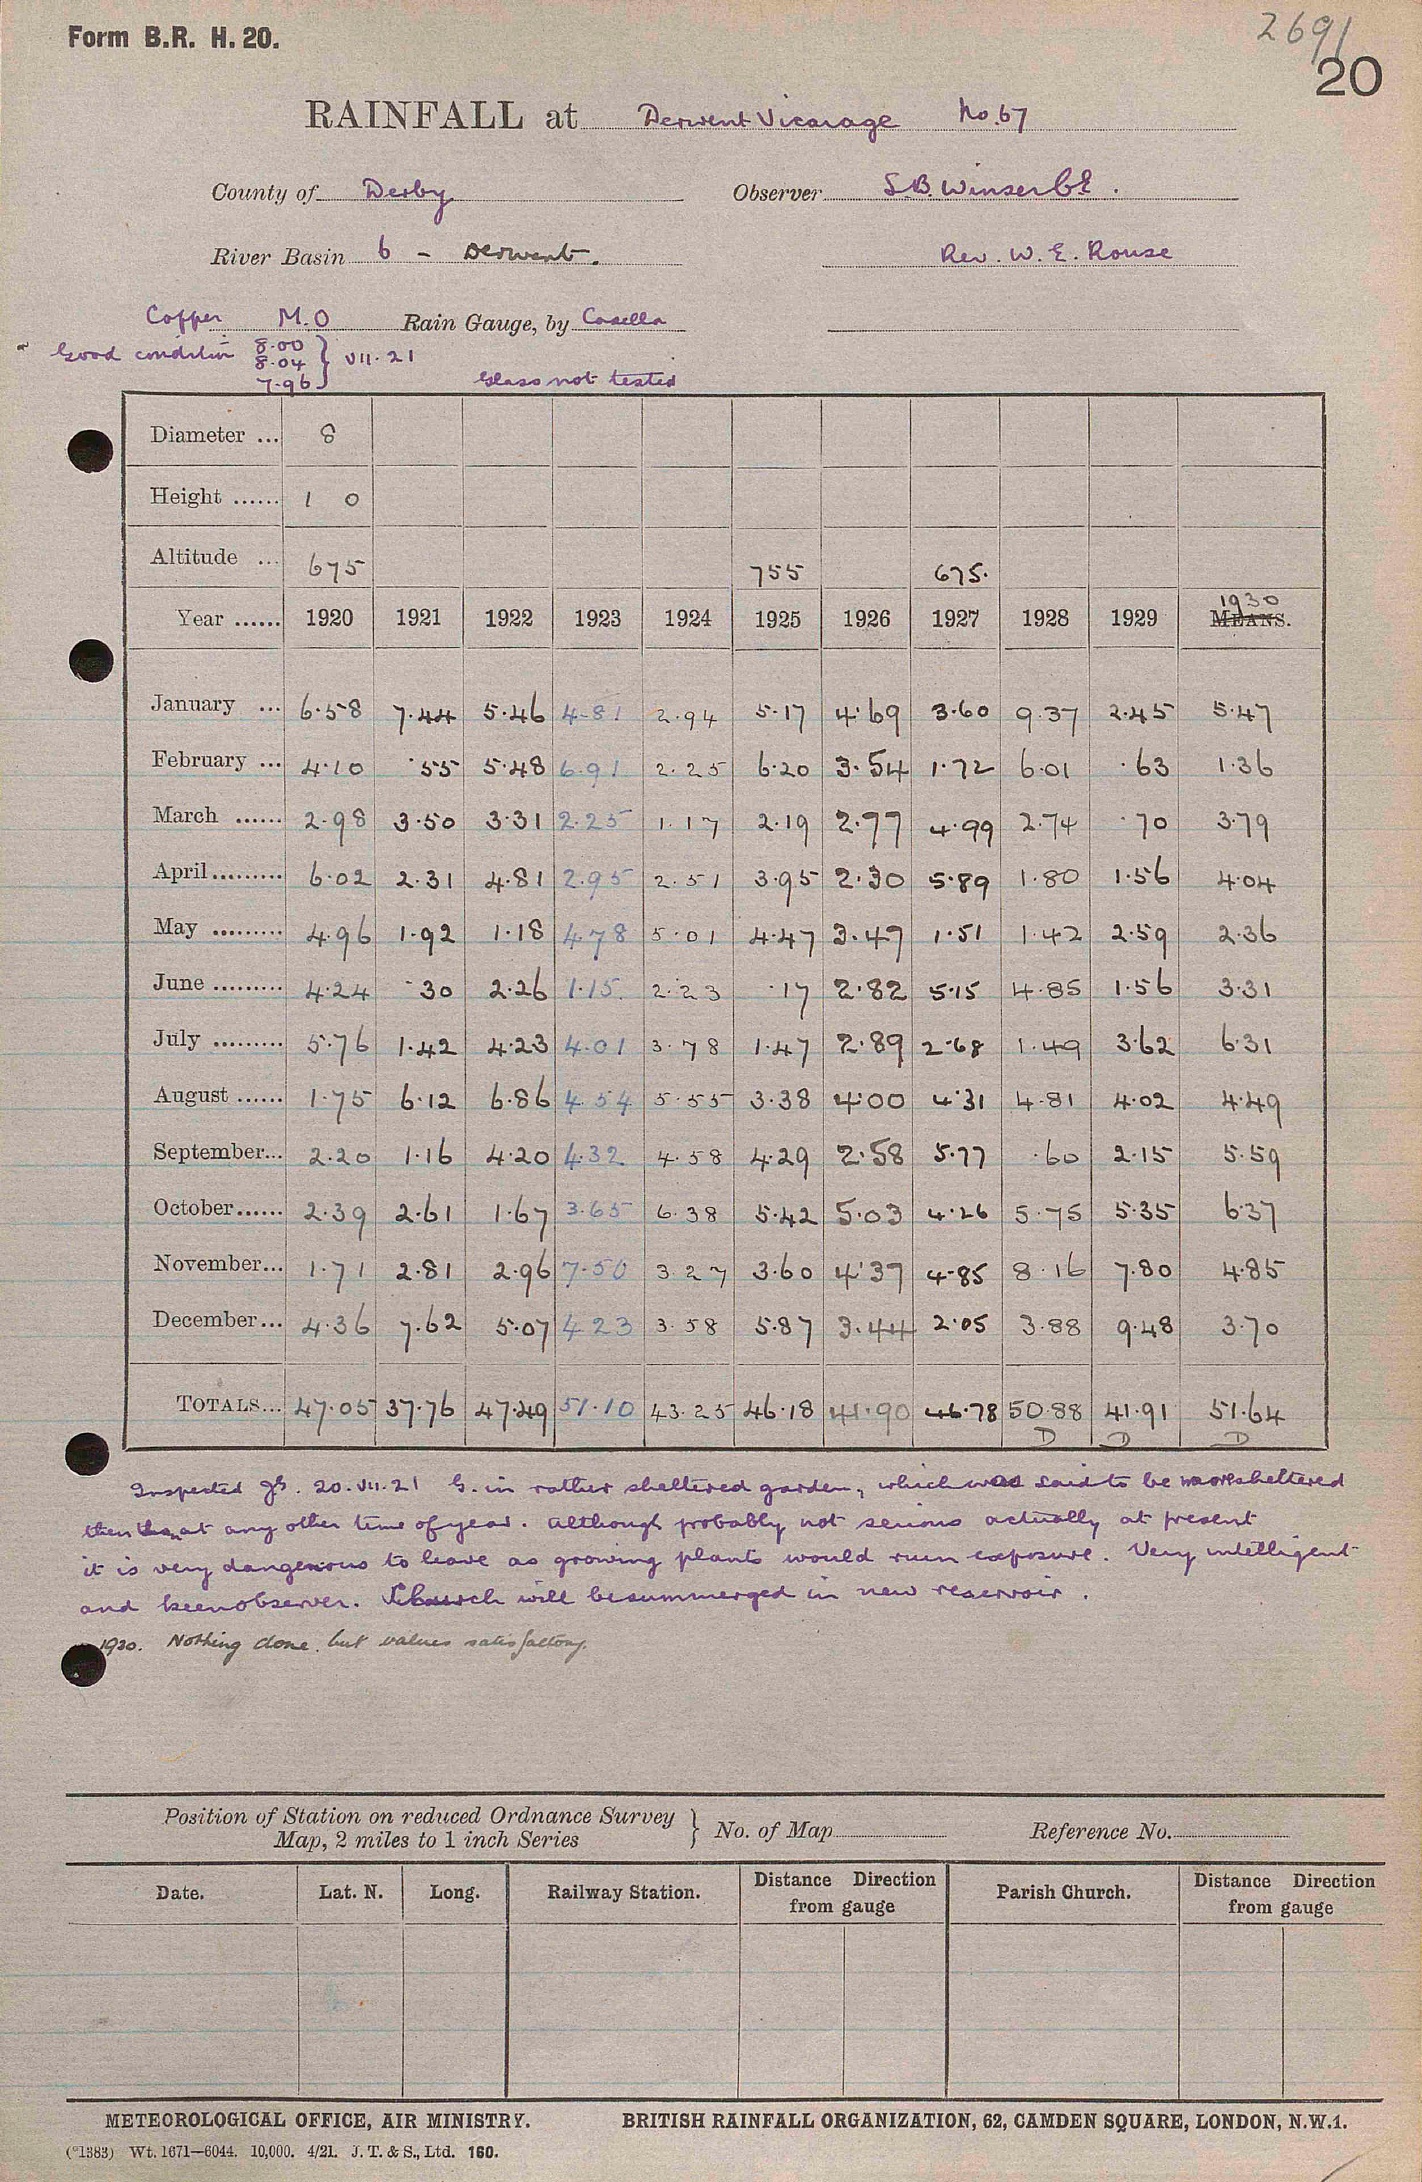 Form B.R. H. 20.
2691
20
RAINFALL at Derwent Vicarage No. 67
County of Derby Observer S.B. Winser
River Basin 6 - Derwent. Rev. W. E. Rouse
Copper M.O Rain Gauge, by Casella
Good condition 8.00 8.04 7.96 } VII. 21 Glass not tested
Diameter ... 8
Height ...... 1 0
Altitude ... 675 755 675.
Year ...... 1920 1921 1922 1923 1924 1925 1926 1927 1928 1929 1930 MEANS.
January ... 6.58 7.44 5.46 4.81 2.94 5.17 4.69 3.60 9.37 2.45 5.47
February ... 4.10 .55 5.48 6.91 2.25 6.20 3.54 1.72 6.01 .63 1.36
March ...... 2.98 3.50 3.31 2.25 1.17 2.19 2.77 4.99 2.74 .70 3.79
April......... 6.02 2.31 4.81 2.95 2.51 3.95 2.30 5.89 1.80 1.56 4.04
May ......... 4.96 1.92 1.18 4.78 5.01 4.47 3.47 1.51 1.42 2.59 2.36
June ......... 4.24 .30 2.26 1.15 2.23 .17 2.82 5.15 4.85 1.56 3.31
July ......... 5.76 1.42 4.23 4.01 3.78 1.47 2.89 2.68 1.49 3.62 6.31
August ...... 1.75 6.12 6.86 4.54 5.55 3.38 4.00 4.31 4.81 4.02 4.49
September... 2.20 1.16 4.20 4.32 4.58 4.29 2.58 5.77 .60 2.15 5.59
October...... 2.39 2.61 1.67 3.65 6.38 5.42 5.03 4.26 5.75 5.35 6.37
November... 1.71 2.81 2.96 7.50 3.27 3.60 4.37 4.85 8.16 7.80 4.85
December... 4.36 7.62 5.07 4.23 3.58 5.87 3.44 2.05 3.88 9.48 3.70
TOTALS... 47.05 37.76 47.49 51.10 43.25 46.18 41.90 46.78 50.88 41.91 51.64
D D D
Inspected 20.VII.21 G. in rather sheltered garden, which was said to be more sheltered
then than at any other time of year. Although probably not serious actually at present
it is very dangerous to leave as growing plants would ruin exposure. Very intelligent
and keen observer. Church will be summerged in new reservoir.
1930. Nothing done, but values satisfactory.
Position of Station on reduced Ordnance Survey
Map, 2 miles to 1 inch Series } No. of Map Reference No.
Date. Lat. N. Long. Railway Station. Distance Direction from gauge Parish Church. Distance Direction from gauge
METEOROLOGICAL OFFICE, AIR MINISTRY. BRITISH RAINFALL ORGANIZATION, 62, CAMDEN SQUARE, LONDON, N.W.1.
(°1383) Wt. 1671—6044. 10,000. 4/21. J. T. & S., Ltd. 160.